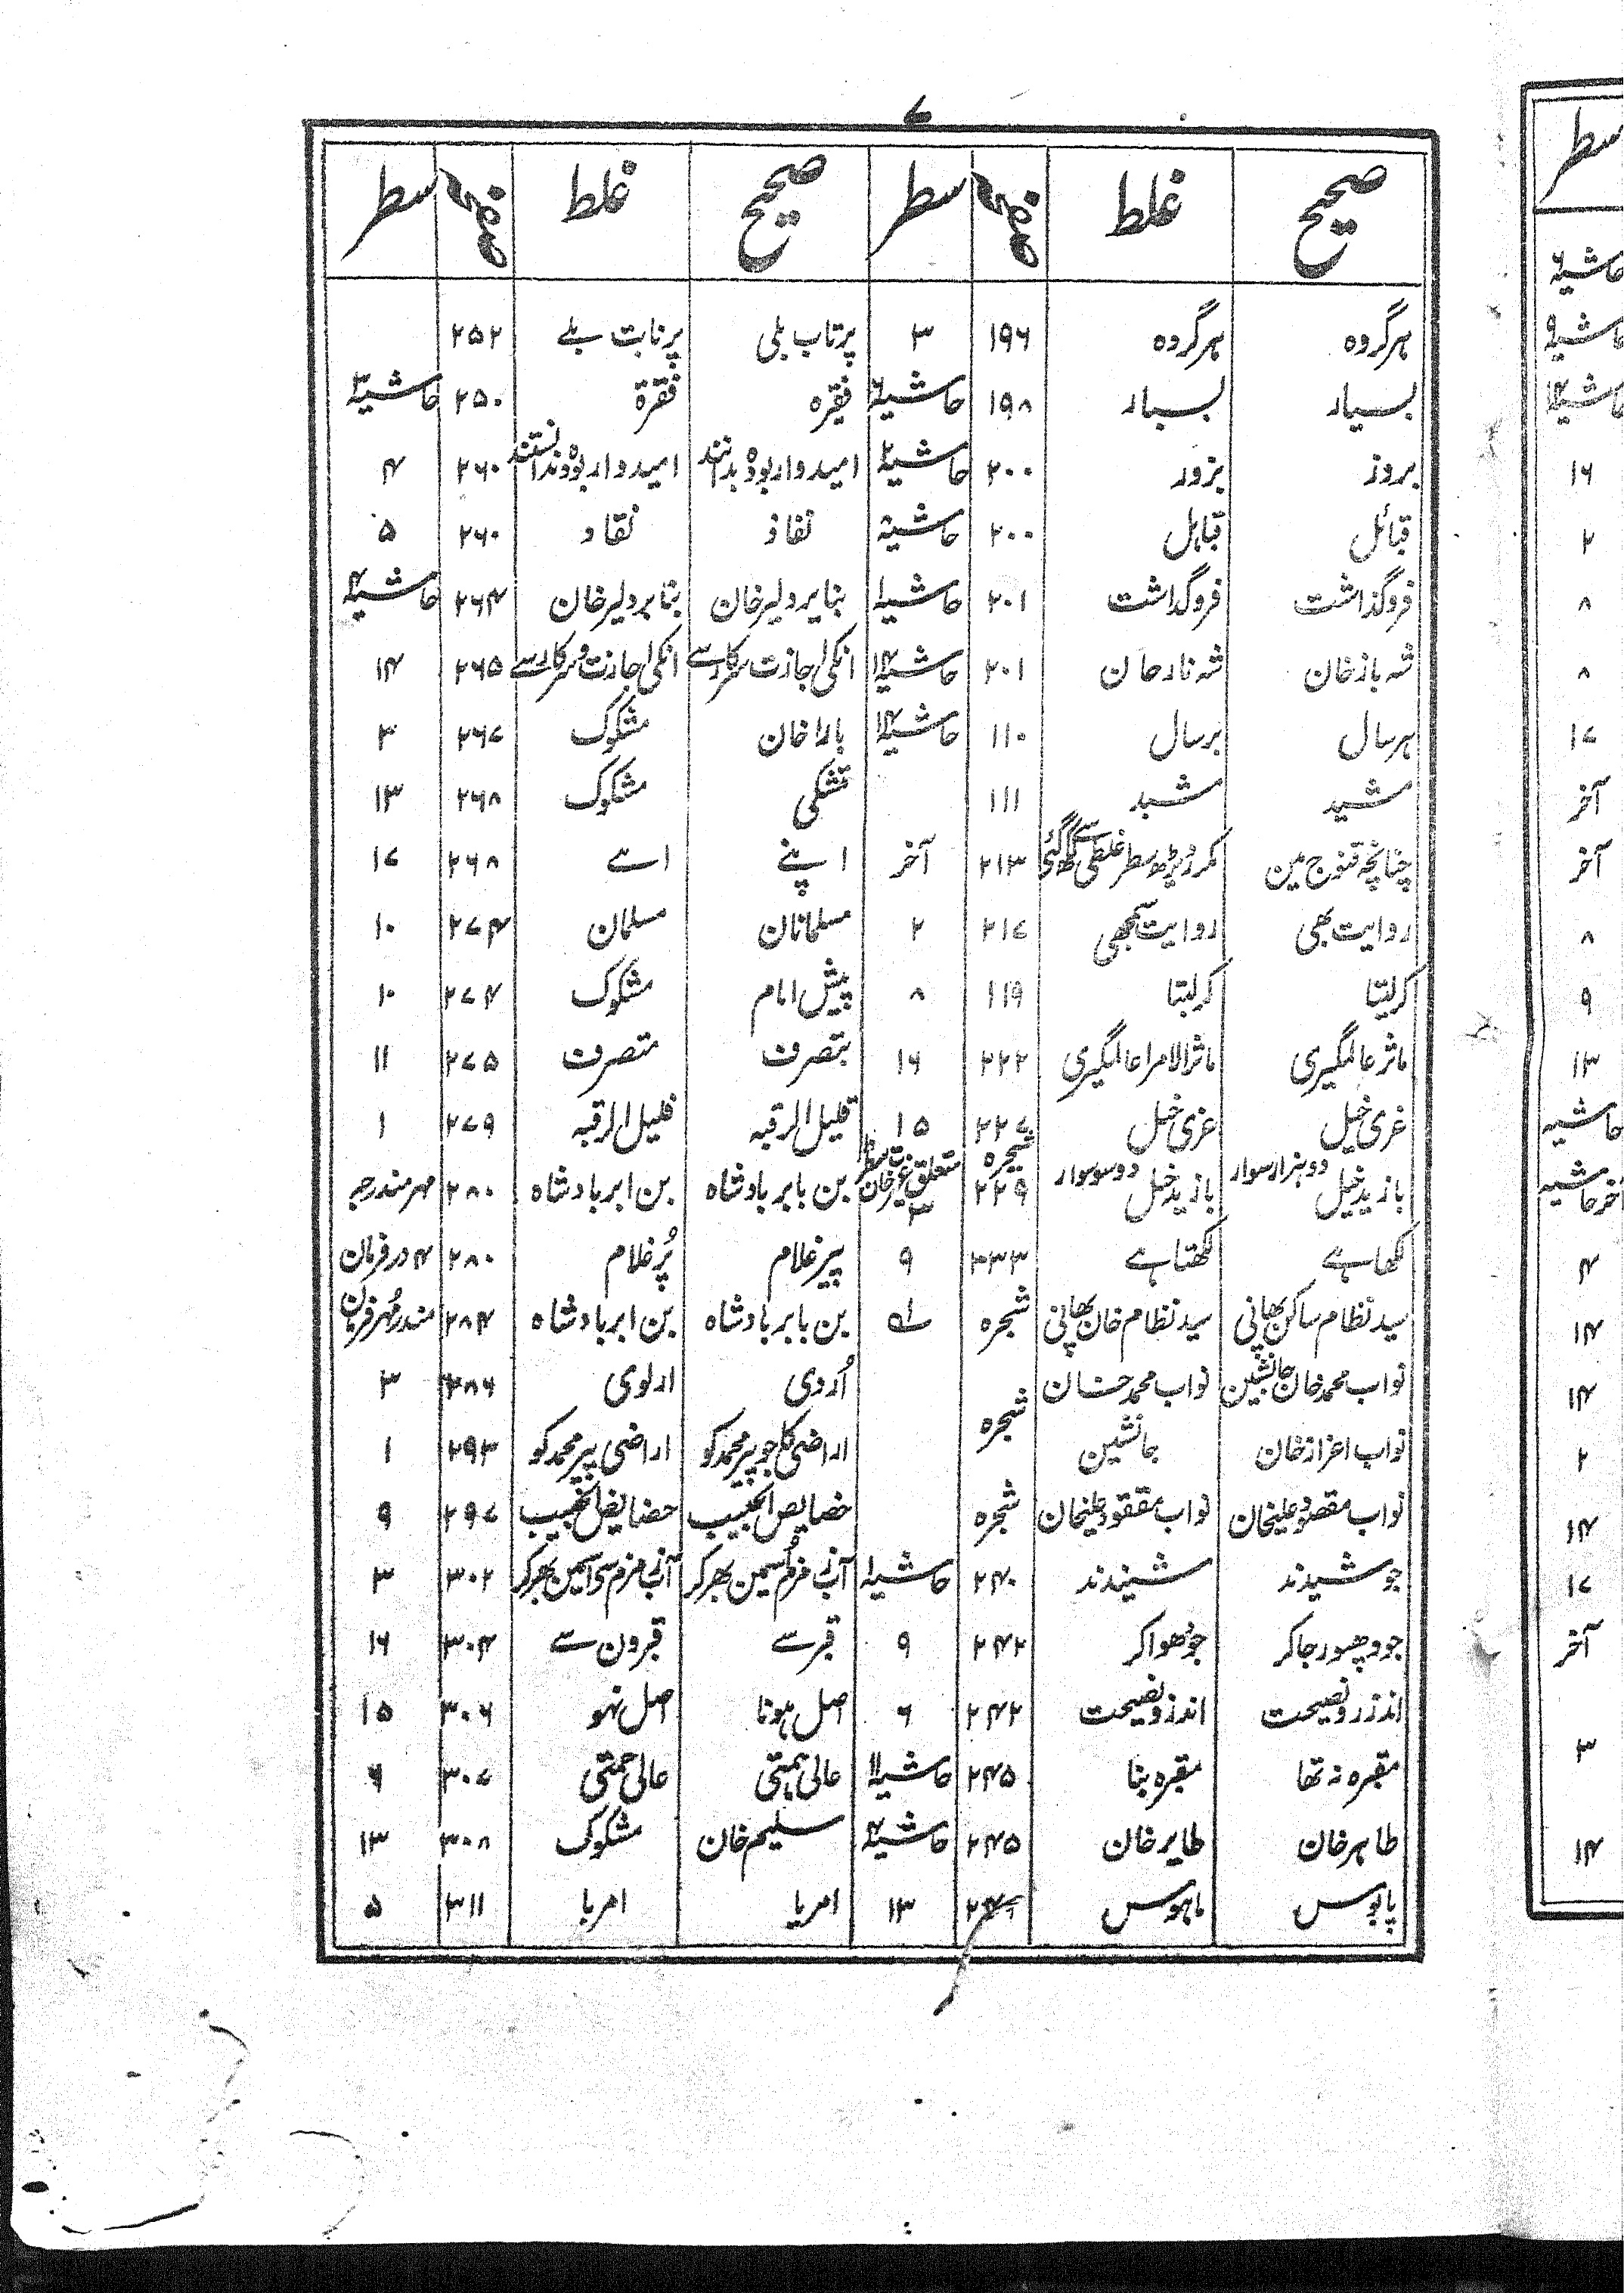 ۷
صحیح غلط صفحہ سطر صحیح غلط صفحہ سطر
ہرگروہ ہرگروہ ۱۹۶ ۳ پرتاب بلی پرنابت بلے ۲۵۲
بسیار لبسار ۱۹۸ حاشیہ فقیرہ فقرة ۲۵۰ حاشیہ
بروز بزور ۲۰۰ حاشیہ امیدوار بودہ بدانند امیدوار بودہ دانستند ۲۶۰ ۴
قبائل قبایل ۲۰۰ حاشیہ نفاذ نقاد ۲۶۰ ۵
فروگذاشت فروگداشت ۲۰۱ حاشیہ بنا بر دلیر خان بتنا بر دلیر خان ۲۶۴ حاشیہ
شہ باز خان شہ نار حان ۲۰۱ حاشیہ انکی اجازت سرکار سے انکی اجازت و سرکار سے ۲۶۵ ۱۴
ہر سال بر سال ۱۱۰ حاشیہ بارا خان مشکوک ۲۶۷ ۳
مشید مشبد ۱۱۱ تشکی مشکوک ۲۶۸ ۱۳
چنانچہ قنوج مین مکرر ڈیڑھ سطر غلطی سے لکھی گئی ۲۱۳ آخر اپنے اسے ۲۶۸ ۱۷
روایت بھی روایت سمجھی ۲۱۷ ۲ مسلمانان مسلمان ۲۷۴ ۱۰
کرلیتا کرلبتا ۱۱۹ ۸ پیش امام مشکوک ۲۷۴ ۱۰
ماثر عالمگیری ماثر الامرا عالمگیری ۲۲۲ ۱۶ بتصرف متصرف ۲۷۵ ۱۱
غری خیل عزی خیل ۲۲۷ ۱۵ قلیل الرقبہ فلیل الرقبہ ۲۷۹ ۱
بازید خیل دو ہزار سوار بازید خیل دو سو سوار شجرہ ۲۲۹ متعلق عزیز خان سطر ۳ بن بابر بادشاہ بن ابر بادشاہ ۲۸۰ مہر مندرجہ
لکھا ہے لکھتا ہے ۲۳۳ ۹ پیر غلام پُر غلام ۲۸۰ ۴ در فرمان
سید نظام ساکن بھانی سید نظام خان بھانی شجرہ بن بابر بادشاہ بن ابر بادشاہ ۲۸۴ مندرجہ مُہر فرمان
نواب محمد خان جانشین نواب محمد خان شجرہ اُردی ارلوی ۲۸۶ ۳
نواب اعزاز خان جانشین اراضی کل جو پیر محمد کو اراضی پیر محمد کو ۲۹۳ ۱
نواب مقصود علیخان نواب مقفود علیخان شجرہ خصایص الحبیب حضایض الخبیب ۲۹۷ ۹
جو شیدند شیندند ۲۴۰ حاشیہ آب زمزم اسمین بھر کر آب زمزم سی اسمین بھر کر ۳۰۲ ۳
جو وچھور جا کر جو ھوا کر ۲۴۲ ۹ قبر سے قبرون سے ۳۰۴ ۱۶
اندزر و نصیحت اندز و نصیحت ۲۴۲ ۶ اصل ہونا اصل نہو ۳۰۶ ۱۵
مقبرہ نہ تھا مقبرہ بنا ۲۴۵ حاشیہ عالی ہمتی عالی حمتی ۳۰۷ ۶
طاہر خان طایر خان ۲۴۵ حاشیہ سلیم خان مشکوک ۳۰۸ ۱۳
پابوس ماہوس ۱۳ امریا امربا ۳۱۱ ۵
سطر
حاشیہ
حاشیہ
حاشیہ
۱۶
۲
۸
۸
۱۷
آخر
آخر
۸
۹
۱۳
حاشیہ
آخر حاشیہ
۴
۱۴
۱۴
۲
۱۴
۱۷
آخر
۳
۱۴